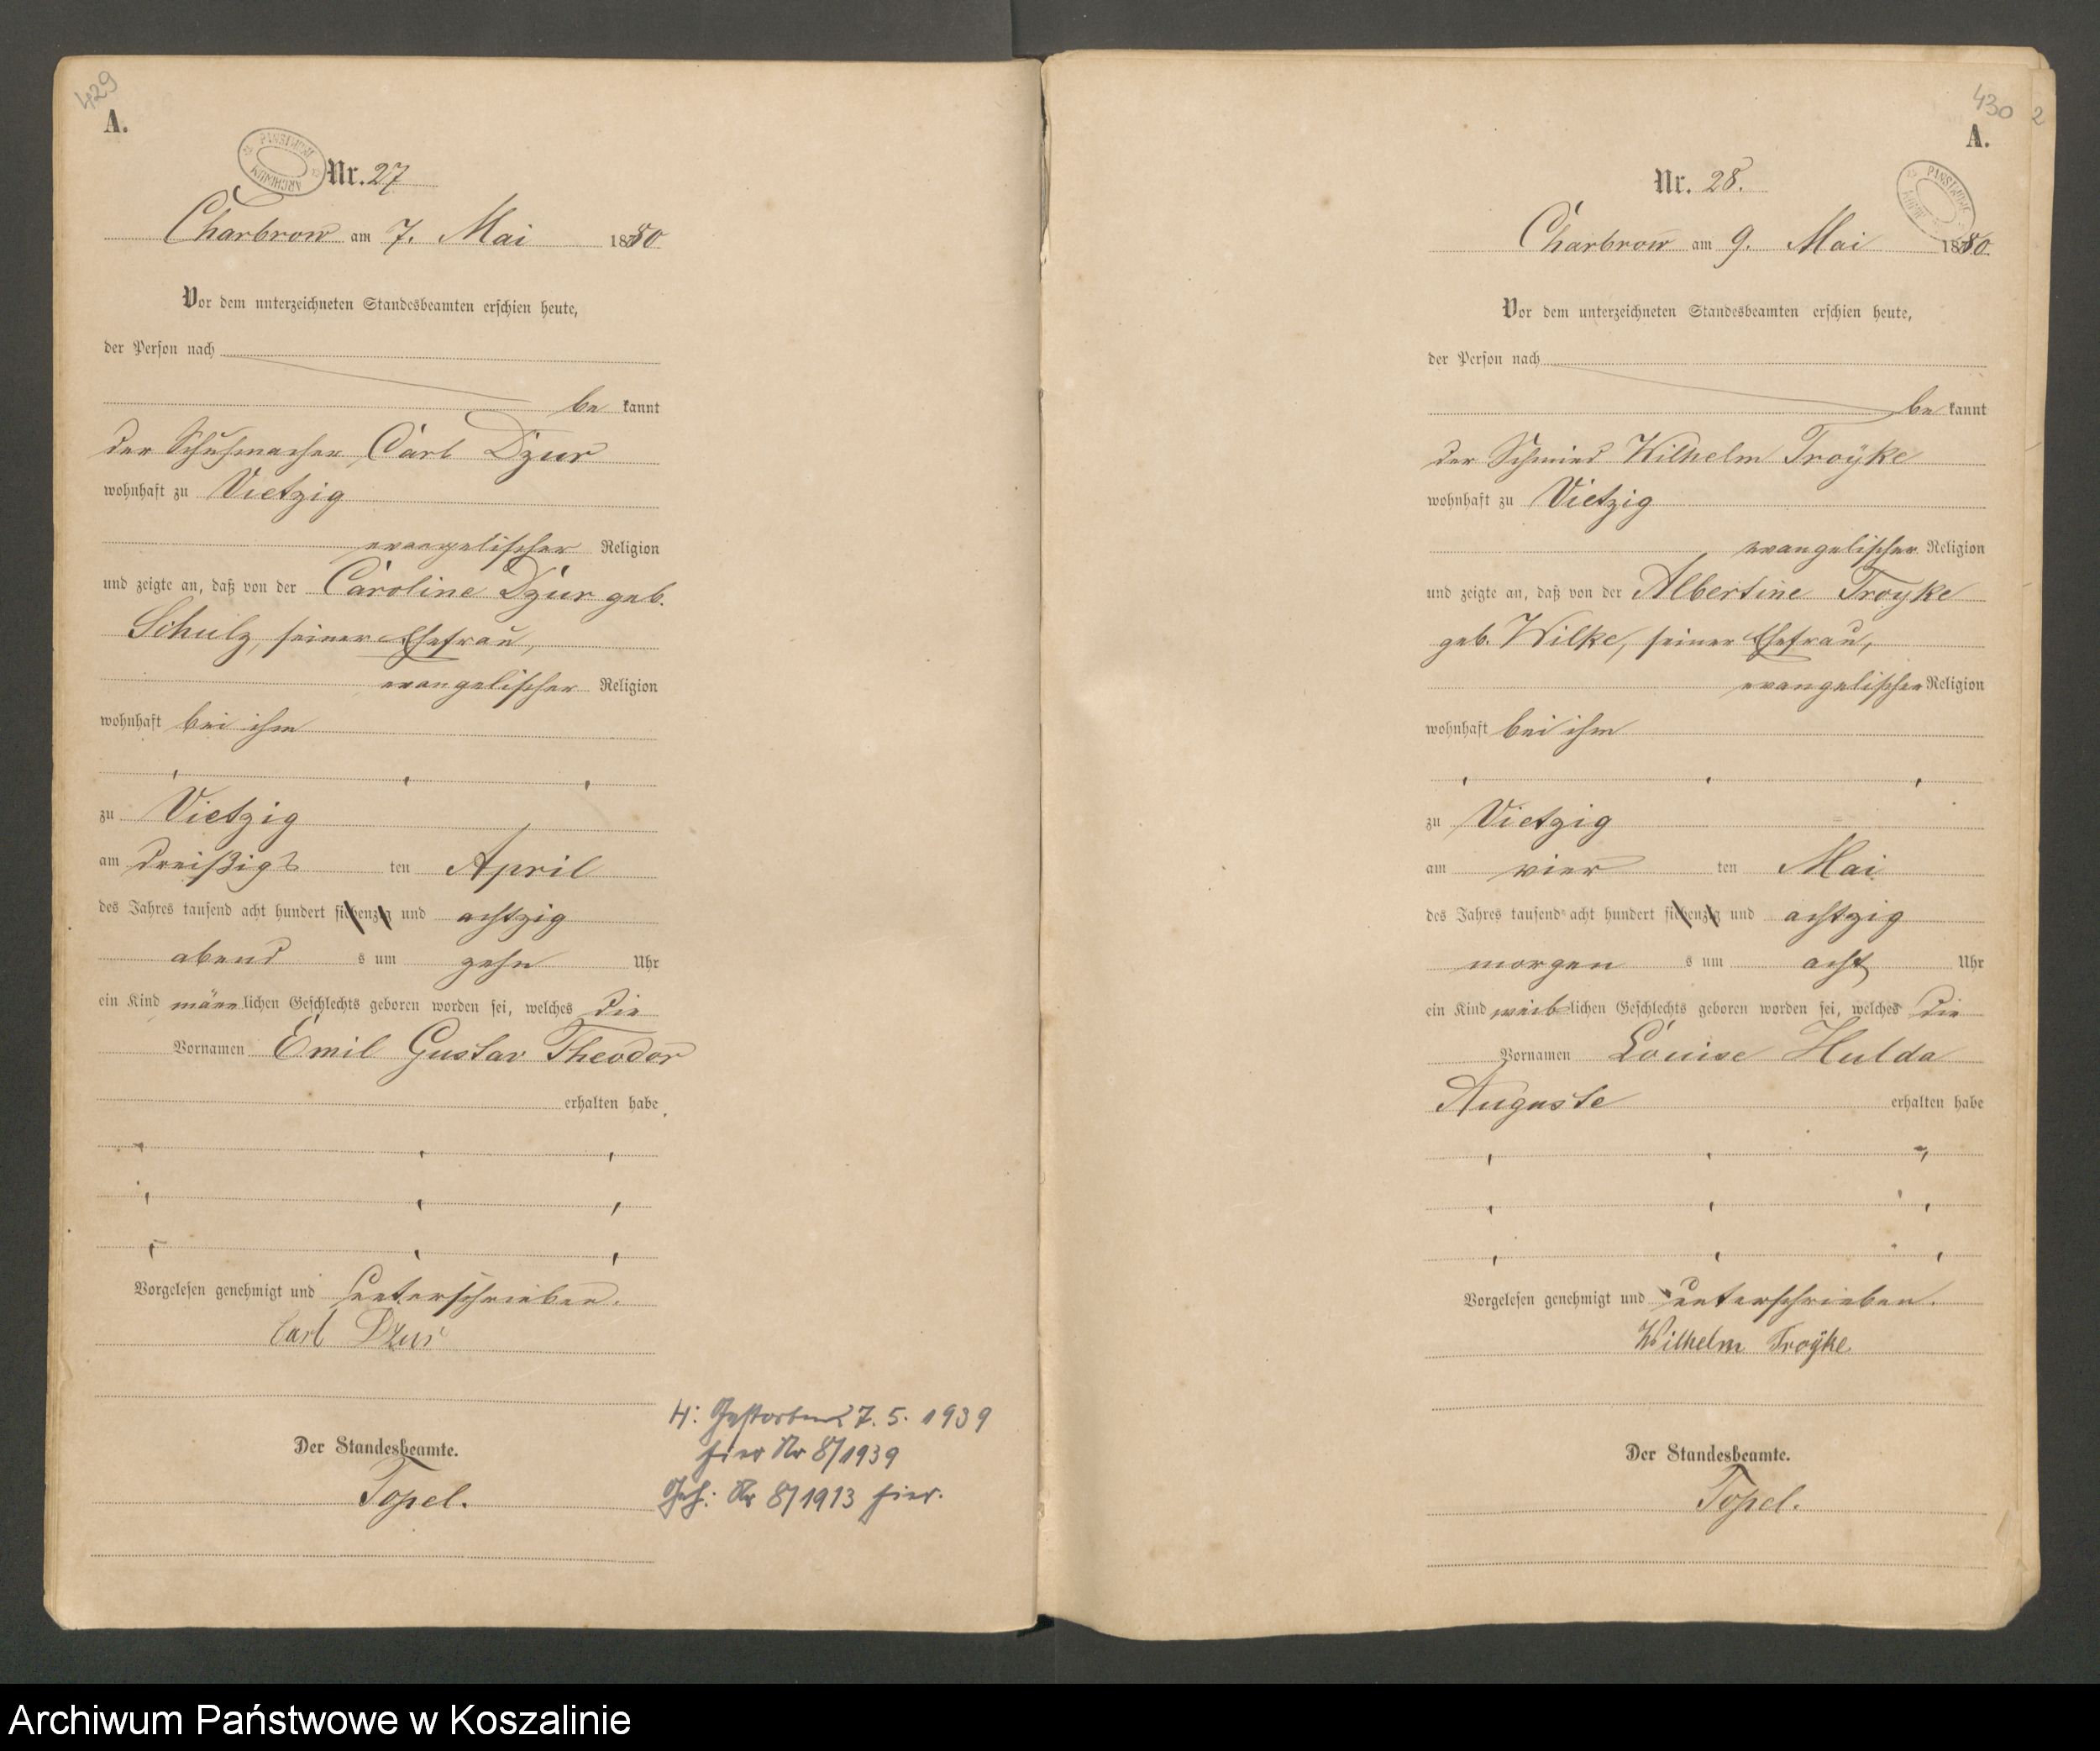 429
A.
PAŃSTWOWE
ARCHIWUM
Nr. 27
Charbrow am 7. Mai 1880.
Vor dem unterzeichneten Standesbeamten erschien heute,
der Person nach
be kannt
der Schuhmacher Carl Dzur
wohnhaft zu Vietzig
evangelischer Religion
und zeigte an, daß von der Caroline Dzur geb.
Schulz, seiner Ehefrau,
evangelischer Religion
wohnhaft bei ihm
zu Vietzig
am dreißigs ten April
des Jahres tausend acht hundert siebenzig und achtzig
abend s um zehn Uhr
ein Kind männ lichen Geschlechts geboren worden sei, welches die
Vornamen Emil Gustav Theodor
erhalten habe.
Vorgelesen genehmigt und unterschrieben.
Carl Dzur
Der Standesbeamte.
Topel.
H: Gestorben 27. 5. 1939
hier Nr 8/1939
Geh: Nr 8/1913 hier.
430
2
A.
PAŃSTWOWE
Nr. 28.
Charbrow am 9. Mai 1880.
Vor dem unterzeichneten Standesbeamten erschien heute,
der Person nach
be kannt
der Schmied Wilhelm Troÿke
wohnhaft zu Vietzig
evangelischer Religion
und zeigte an, daß von der Albertine Troyke
geb. Wilke, seiner Ehefrau,
evangelischer Religion
wohnhaft bei ihm
zu Vietzig
am vier ten Mai
des Jahres tausend acht hundert siebenzig und achtzig
morgen s um acht Uhr
ein Kind weib lichen Geschlechts geboren worden sei, welches die
Vornamen Louise Hulda
Auguste erhalten habe
Vorgelesen genehmigt und unterschrieben.
Wilhelm Troÿke
Der Standesbeamte.
Topel.
Archiwum Państwowe w Koszalinie